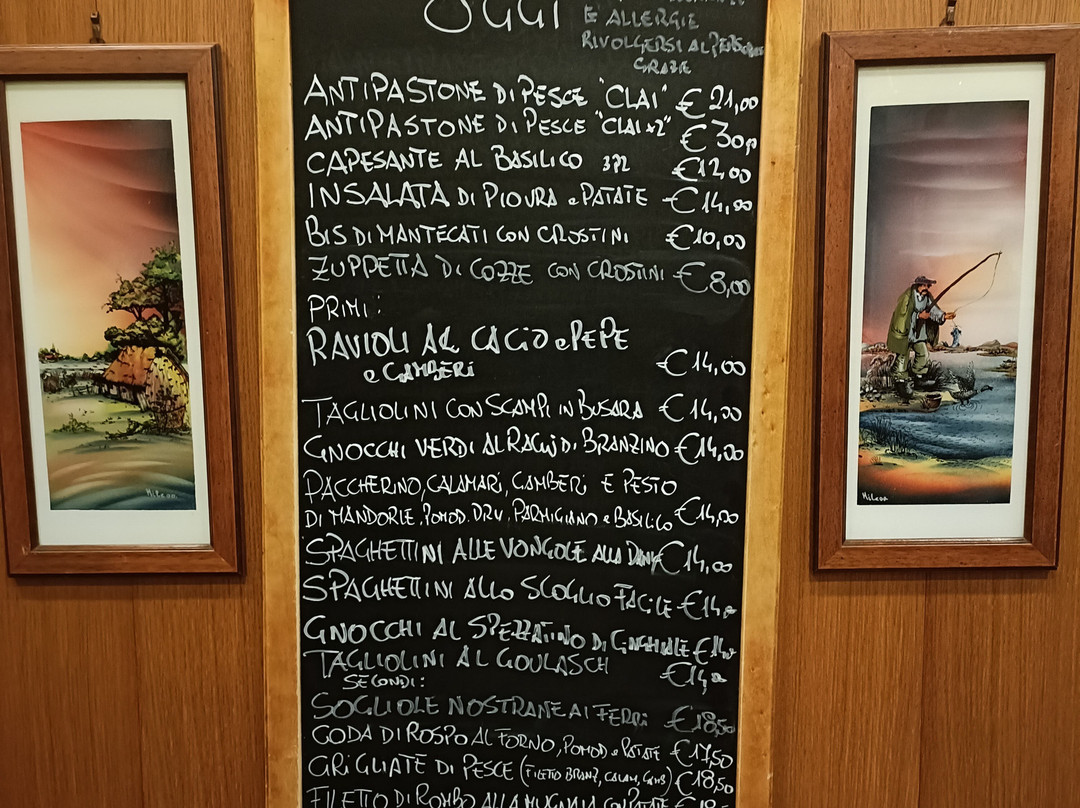 OGGI
E ALLERGIE
RIVOLGERSI AL PERSONALE
GRAZIE
ANTIPASTONE DI PESCE "CLAI" € 21,00
ANTIPASTONE DI PESCE "CLAI x2" € 30,00
CAPESANTE AL BASILICO 3PZ € 12,00
INSALATA DI PIOVRA e PATATE € 14,00
BIS DI MANTECATI CON CROSTINI € 10,00
ZUPPETTA DI COZZE CON CROSTINI € 8,00
PRIMI:
RAVIOLI AL CACIO e PEPE
e GAMBERI € 14,00
TAGLIOLINI CON SCAMPI IN BUSARA € 14,00
GNOCCHI VERDI AL RAGÙ DI BRANZINO € 14,00
PACCHERINO, CALAMARI, GAMBERI E PESTO
DI MANDORLE, POMOD. DRY, PARMIGIANO e BASILICO € 14,00
SPAGHETTINI ALLE VONGOLE ALLA € 14,00
SPAGHETTINI ALLO SCOGLIO FACILE € 14,00
GNOCCHI AL SPEZZATINO DI CINGHIALE € 14,00
TAGLIOLINI AL GOULASCH € 14,00
SECONDI:
SOGLIOLE NOSTRANE AI FERRI € 18,50
CODA DI ROSPO AL FORNO, POMOD e PATATE € 17,50
GRIGLIATE DI PESCE (FILETTO BRANZ, CALAM, GAMB) € 18,50
FILETTO DI ROMBO ALLA MUGNAIA CON PATATE €